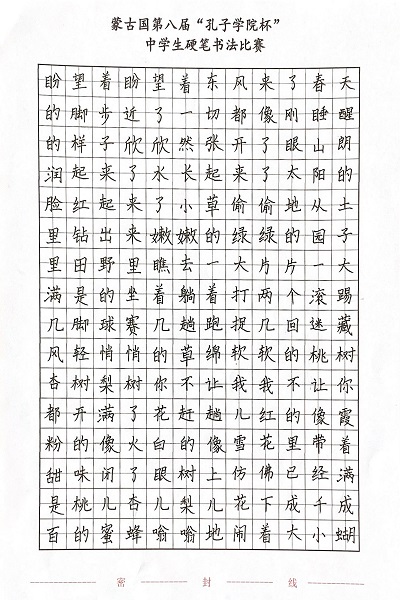 蒙古国第八届“孔子学院杯”
中学生硬笔书法比赛
盼望着盼望着东风来了春天
的脚步近了一切都像刚睡醒
的样子欣欣然张开了眼山朗
润起来了水长起来了太阳的
脸红起来了小草偷偷地从土
里钻出来嫩嫩的绿绿的园子
里田野里瞧去一大片片一大
满是的坐着躺着打两个滚踢
几脚球赛几趟跑捉几回迷藏
风轻悄悄的草绵软软的桃树
杏树梨树你不让我我不让你
都开满了花赶趟儿红的像霞
粉的像火白的像雪花里带着
甜味闭了眼树上仿佛已经满
是桃儿杏儿梨儿花下成千成
百的蜜蜂嗡嗡地闹着大小蝴
密封线